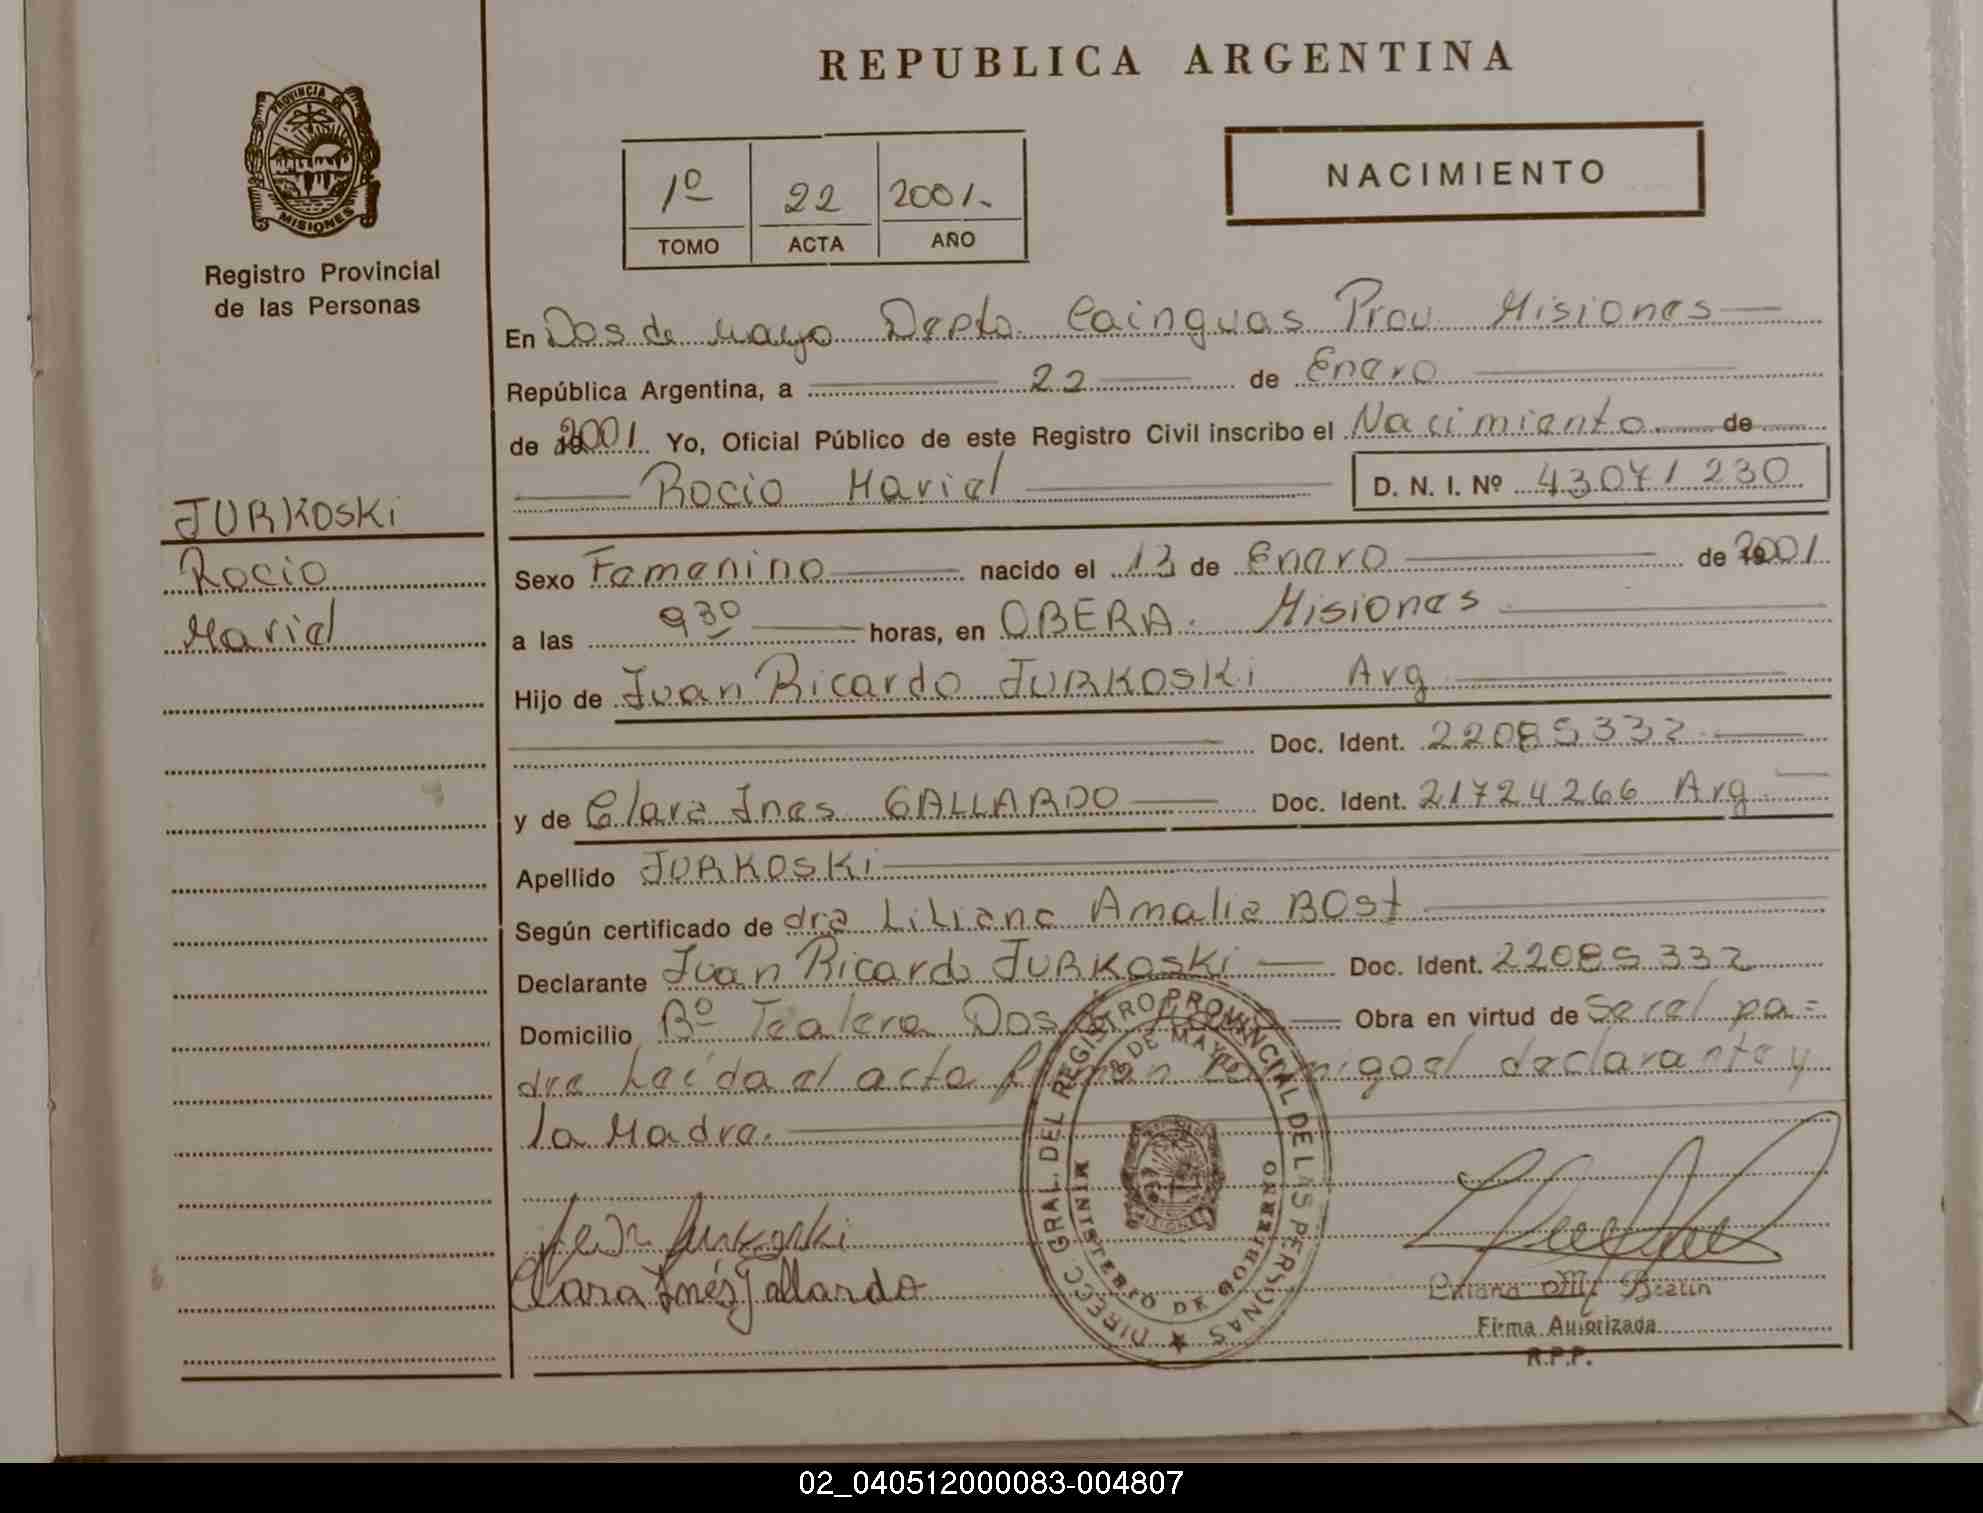 REPUBLICA ARGENTINA
PROVINCIA DE
MISIONES
Registro Provincial
de las Personas
1º 22 2001.
TOMO ACTA AÑO
NACIMIENTO
En Dos de Mayo Depto. Cainguas Prov. Misiones
República Argentina, a 22 de Enero
de 2001 Yo, Oficial Público de este Registro Civil inscribo el Nacimiento de
Rocio Mariel D. N. I. Nº 43071230
JURKOSKi
Rocio
Mariel
Sexo Femenino nacido el 13 de Enero de 2001
a las 9 30 horas, en OBERA. Misiones
Hijo de Juan Ricardo JURKOSKi Arg
Doc. Ident. 22085332
y de Clara Ines GALLARDO Doc. Ident. 21724266 Arg
Apellido JURKOSKi
Según certificado de dra Liliana Amalia BOst
Declarante Juan Ricardo JURKoski Doc. Ident. 22085332
Domicilio Bº Tealera Dos Obra en virtud de Ser el pa=
dre Leída el acta el declarante y
la Madre.
DIRECC. GRAL. DEL REGISTRO PROVINCIAL DE LAS PERSONAS
2 DE MAYO
MINISTERIO DE GOBIERNO
MISIONES
Jurkoski
Clara Inés Gallardo
Firma Autorizada
R.P.P.
02_040512000083-004807